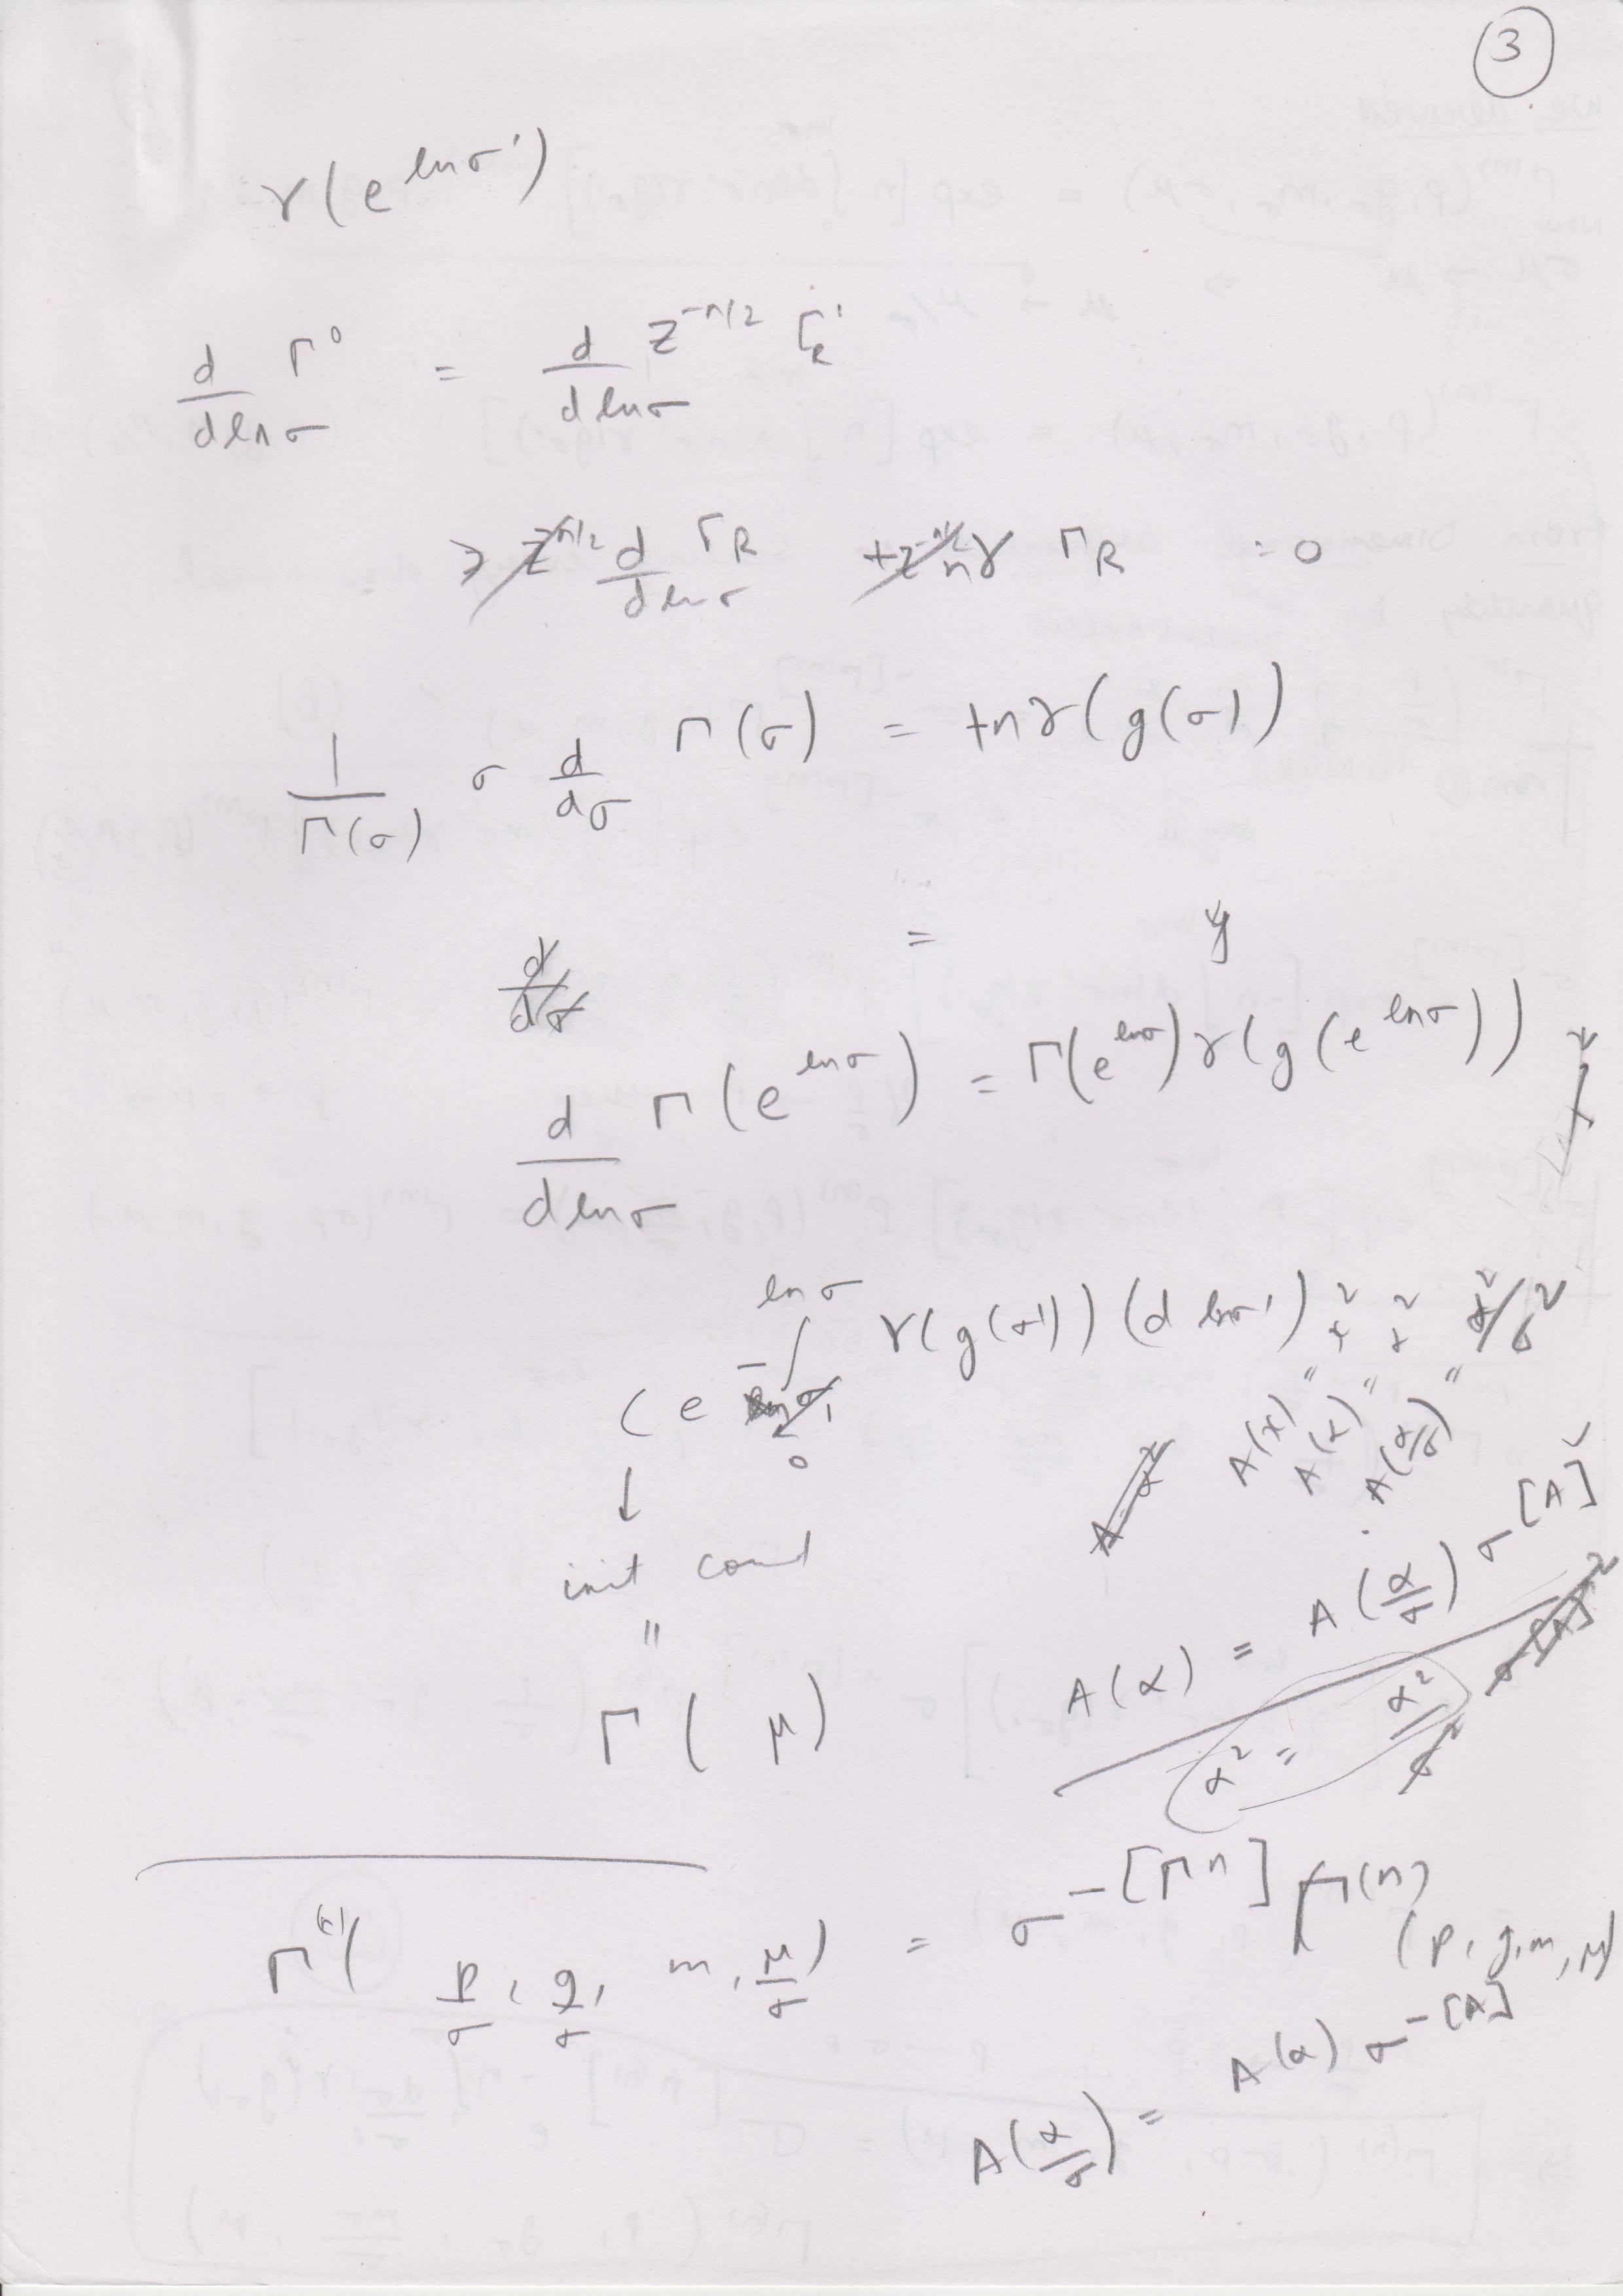 3
γ(e^{lnσ'})
d/dlnσ Γ^0 = d/dlnσ Z^{-n/2} Γ_R
Z^{n/2} d/dlnσ Γ_R + Z^{-n/2} nγ Γ_R = 0
1/Γ(σ) σ d/dσ Γ(σ) = +nγ(g(σ))
=
d/dσ
d/dlnσ Γ(e^{lnσ}) = Γ(e^{lnσ}) γ(g(e^{lnσ}))
C e^{-∫_0^{lnσ} γ(g(σ')) (d lnσ')}
↓
init cond
"
Γ( μ)
x^2 x^2 x^2/σ^2
" " "
A(x) A(x) A(α/σ)
A(α) = A(α/σ) σ^{[A]}
α^2 = α^2/σ^2
Γ^{(n)}( p/σ, g/σ, m, μ/σ) = σ^{-[Γ^n]} Γ^{(n)}(p, g, m, μ)
A(α/σ) = A(α) σ^{-[A]}